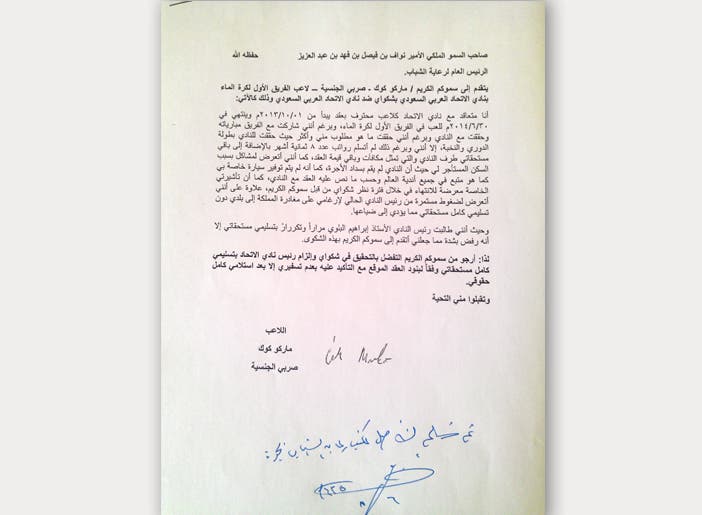 صاحب السمو الملكي الأمير نواف بن فيصل بن فهد بن عبد العزيز حفظه الله
الرئيس العام لرعاية الشباب.
يتقدم إلى سموكم الكريم / ماركو كوك - صربي الجنسية – لاعب الفريق الأول لكرة الماء
بنادي الاتحاد العربي السعودي بشكواي ضد نادي الاتحاد العربي السعودي وذلك كالآتي:
أنا متعاقد مع نادي الاتحاد كلاعب محترف بعقد يبدأ من ٢٠١٣/١٠/٠١م وينتهي في
٢٠١٤/٦/٣٠م للعب في الفريق الأول لكرة الماء، وبرغم أنني شاركت مع الفريق مبارياته
وحققت مع النادي وبرغم أنني حققت ما هو مطلوب مني وأكثر حيث حققت للنادي بطولة
الدوري والنخبة، إلا أنني وبرغم ذلك لم أتسلم رواتب عدد ٨ ثمانية أشهر بالإضافة إلى باقي
مستحقاتي طرف النادي والتي تمثل مكافآت وباقي قيمة العقد، كما أنني أتعرض لمشاكل بسبب
السكن المستأجر لي حيث أن النادي لم يقم بسداد الأجرة، كما أنه لم يتم توفير سيارة خاصة بي
كما هو متبع في جميع أندية العالم وحسب ما نص عليه العقد مع النادي، كما أن تأشيرتي
الخاصة معرضة للانتهاء في خلال فترة نظر شكواي من قبل سموكم الكريم، علاوة على أنني
أتعرض لضغوط مستمرة من رئيس النادي الحالي لإرغامي على مغادرة المملكة إلى بلدي دون
تسليمي كامل مستحقاتي مما يؤدي إلى ضياعها.
وحيث أنني طالبت رئيس النادي الأستاذ إبراهيم البلوي مراراً وتكراراً بتسليمي مستحقاتي إلا
أنه رفض بشدة مما جعلني أتقدم إلى سموكم الكريم بهذه الشكوى.
لذا: أرجو من سموكم الكريم التفضل بالتحقيق في شكواي وإلزام رئيس نادي الاتحاد بتسليمي
كامل مستحقاتي وفقاً لبنود العقد الموقع مع التأكيد عليه بعدم تسفيري إلا بعد استلامي كامل
حقوقي.
وتقبلوا مني التحية
اللاعب
ماركو كوك
صربي الجنسية
تم